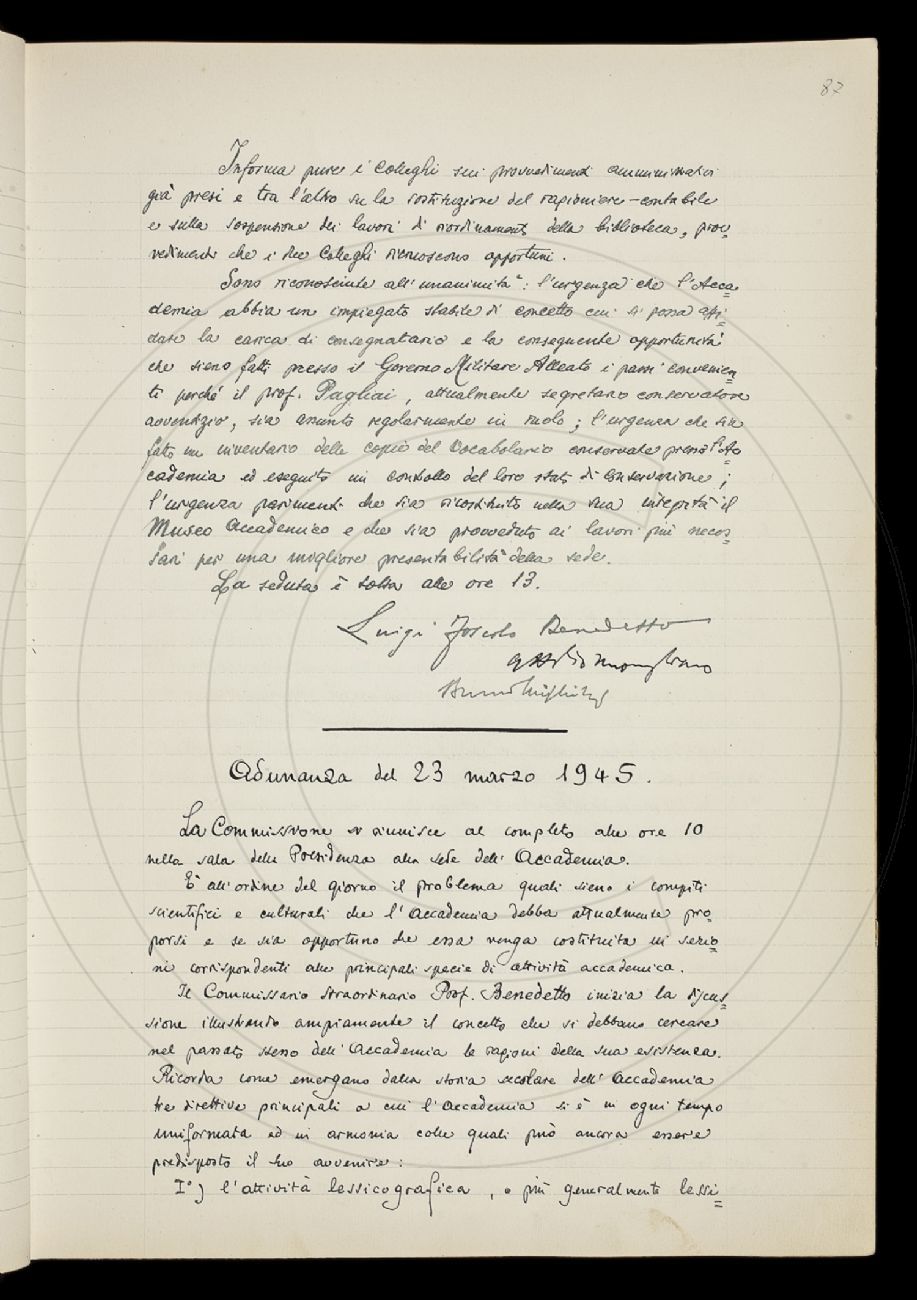 87
Informa pure i Colleghi sui provvedimenti amministrativi
già presi e tra l'altro su la sostituzione del ragioniere-contabile
e sulla sospensione dei lavori di riordinamento della biblioteca, prov=
vedimenti che i due Colleghi riconoscono opportuni.
Sono riconosciute all'unanimità: l'urgenza che l'Acca=
demia abbia un impiegato stabile di concetto cui si possa affi=
dare la carica di consegnatario e la conseguente opportunità
che sieno fatti presso il Governo Militare Alleato i passi convenien=
ti perché il prof. Pagliai, attualmente segretario conservatore
avventizio, sia assunto regolarmente in ruolo; l'urgenza che sia
fatto un inventario delle copie del Vocabolario conservate presso l'Ac=
cademia ed eseguito un controllo del loro stato di conservazione;
l'urgenza parimenti che sia ricostituito nella sua integrità il
Museo Accademico e che sia provveduto ai lavori più neces=
sari per una migliore presentabilità della sede.
La seduta è tolta alle ore 13.
Luigi Foscolo Benedetto
Attilio Momigliano
Bruno Migliorini
Adunanza del 23 marzo 1945.
La Commissione si riunisce al completo alle ore 10
nella sala della Presidenza alla sede dell'Accademia.
È all'ordine del giorno il problema quali sieno i compiti
scientifici e culturali che l'Accademia debba attualmente pro=
porsi e se sia opportuno che essa venga costituita in sezio=
ni corrispondenti alle principali specie di attività accademica.
Il Commissario Straordinario Prof. Benedetto inizia la discus=
sione illustrando ampiamente il concetto che si debbano cercare
nel passato stesso dell'Accademia le ragioni della sua esistenza.
Ricorda come emergano dalla storia secolare dell'Accademia
tre direttive principali a cui l'Accademia si è in ogni tempo
uniformata ed in armonia colle quali può ancora essere
predisposto il suo avvenire:
I°) l'attività lessicografica, o più generalmente lessi=